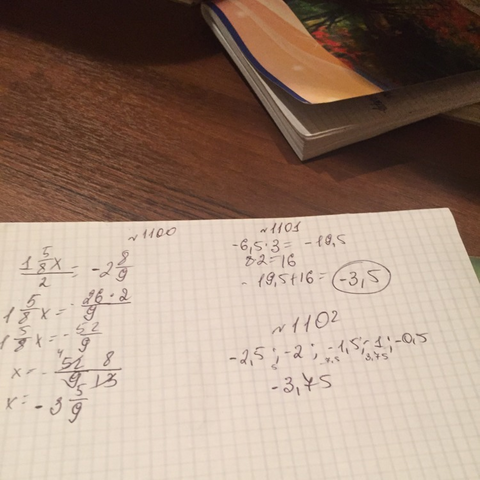 №1100
(1 5/8 x)/2 = -2 8/9
1 5/8 x = - (26·2)/9
1 5/8 x = - 52/9
x = - (52 · 8)/(9 · 13)
4
x = - 3 5/9
№1101
-6,5·3 = -19,5
82=16
- 19,5+16= -3,5
№1102
-2,5 ; -2 ; -1,5 ; -1 ; -0,5
5 7,5 3,75
-3,75